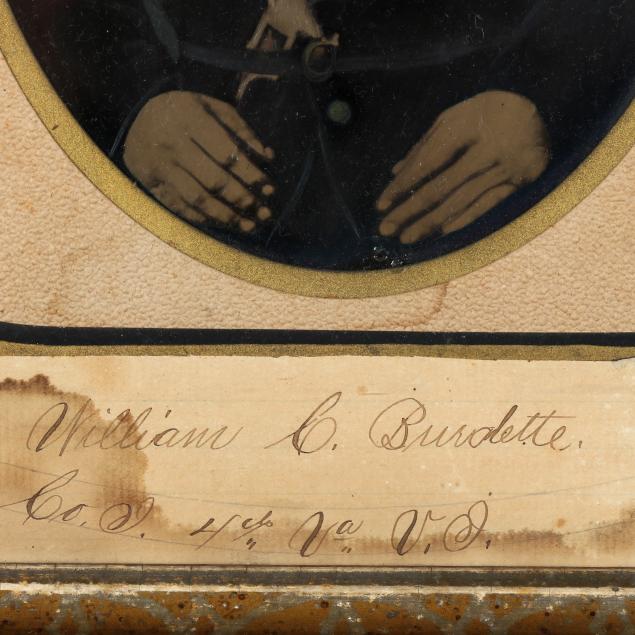 William C. Burdette.
Co. I. 4th Va V. I.